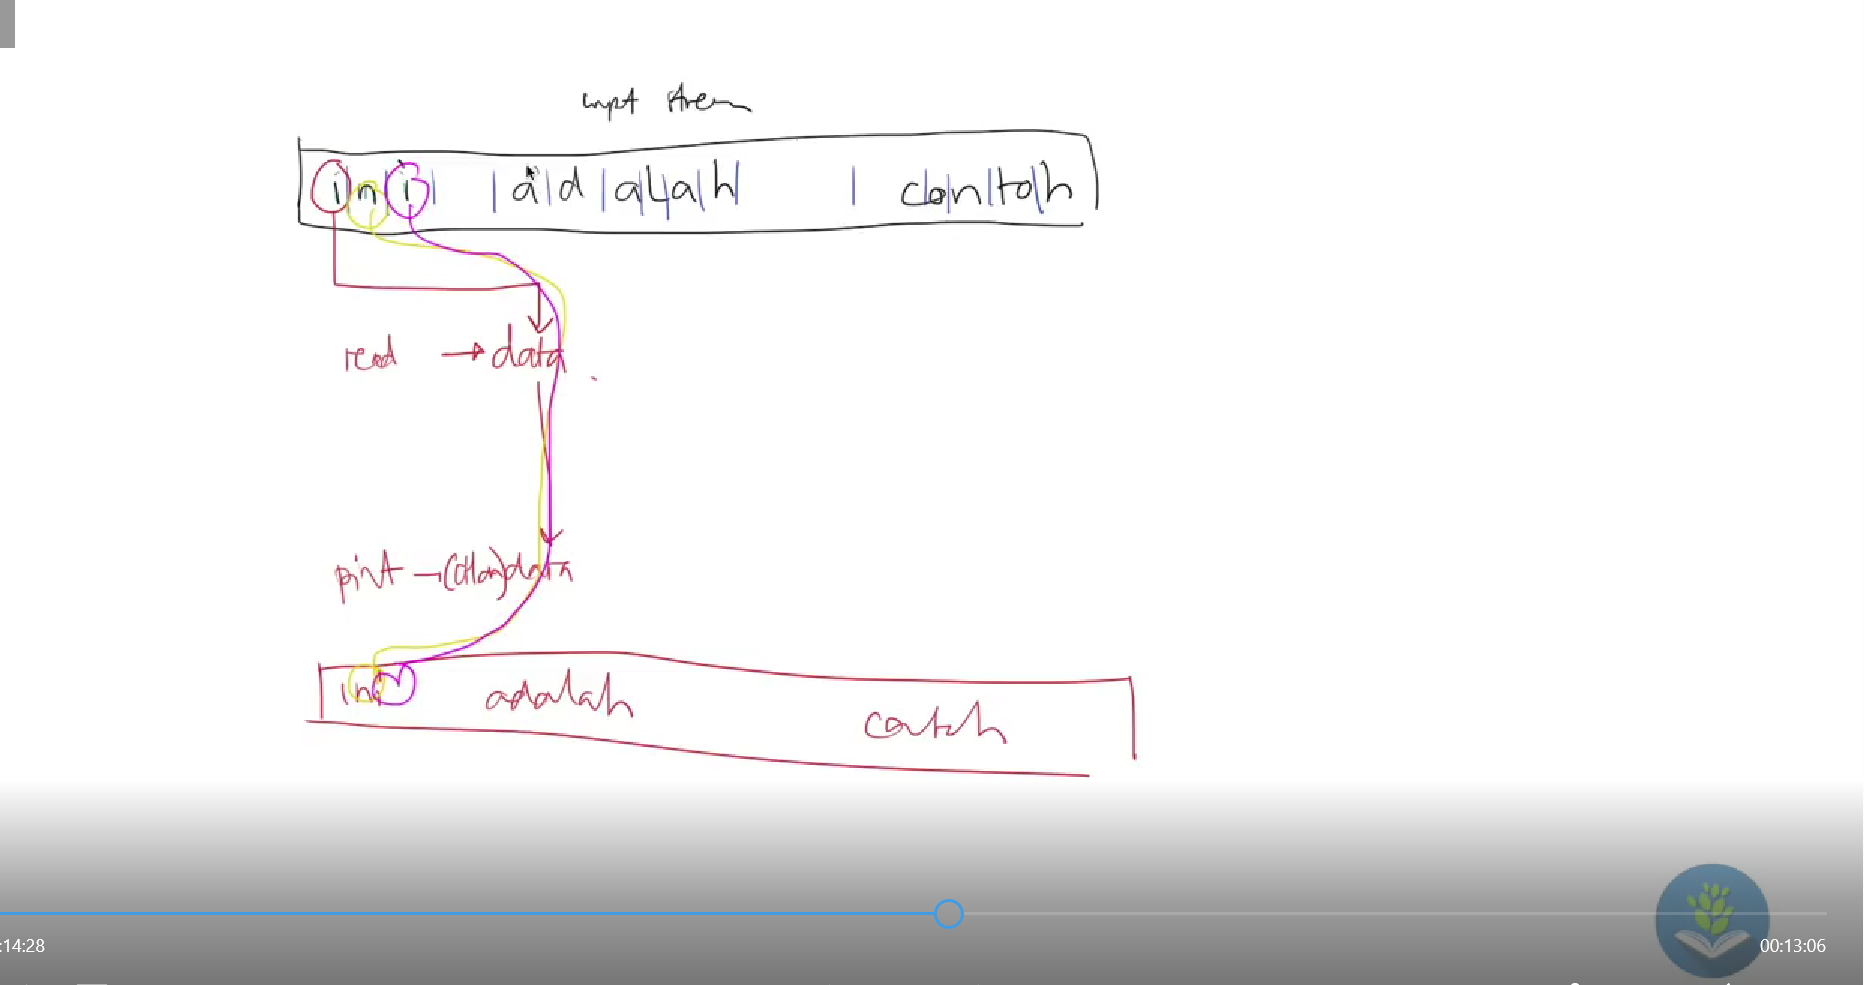 input stream
ini adalah contoh
read → data
print → (char)data
ini adalah contoh
:14:28 00:13:06